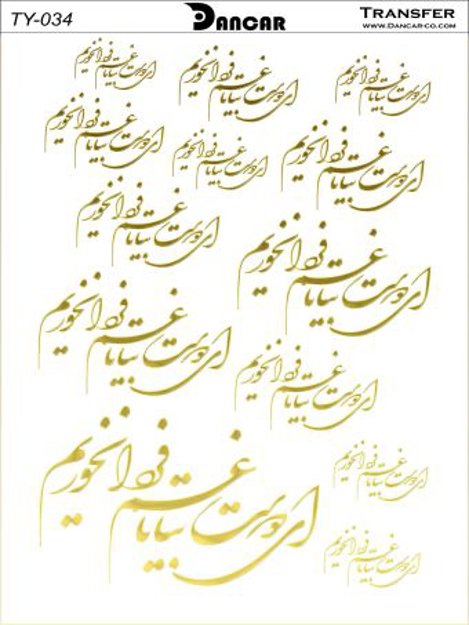 TY-034
DANCAR
TRANSFER
WWW.DANCAR-CO.COM
ای دوست بیا تا غم فردا نخوریم
ای دوست بیا تا غم فردا نخوریم
ای دوست بیا تا غم فردا نخوریم
ای دوست بیا تا غم فردا نخوریم
ای دوست بیا تا غم فردا نخوریم
ای دوست بیا تا غم فردا نخوریم
ای دوست بیا تا غم فردا نخوریم
ای دوست بیا تا غم فردا نخوریم
ای دوست بیا تا غم فردا نخوریم
ای دوست بیا تا غم فردا نخوریم
ای دوست بیا تا غم فردا نخوریم
ای دوست بیا تا غم فردا نخوریم
ای دوست بیا تا غم فردا نخوریم